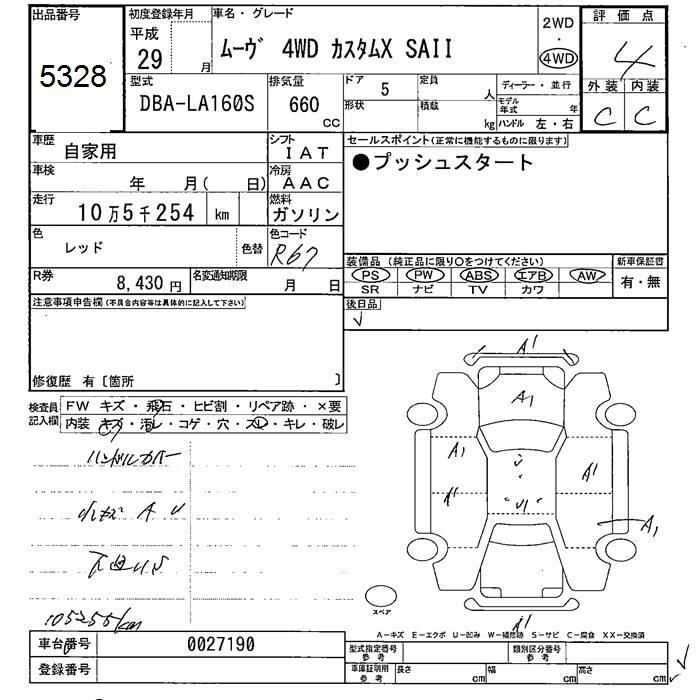 出品番号
5328
初度登録年月
平成
29
月
車名・グレード
ムーヴ 4WD カスタムX SAII
2WD
・
4WD
評価点
4
外装 内装
C C
型式
DBA-LA160S
排気量
660
cc
ドア 5
定員
人
形状
積載
kg
ディーラー・並行
モデル年式
年
ハンドル 左・右
車歴
自家用
シフト
IAT
車検
年 月( 日)
冷房
AAC
走行
10万5千254 km
燃料
ガソリン
色
レッド
色替
色コード
R67
R券
8,430 円
名変通知期限
月 日
セールスポイント(正常に機能するものに限ります)
●プッシュスタート
装備品 (純正品に限り○をつけてください)
PS PW ABS エアB AW
SR ナビ TV カワ
新車保証書
有・無
後日品
注意事項申告欄(不具合内容等は具体的に記入して下さい)
修復歴 有〔箇所 〕
検査員
記入欄
FW キズ・飛石・ヒビ割・リペア跡・×要
内装 キズ・汚レ・コゲ・穴・スレ・キレ・破レ
ハンドルカバー
小キズ A U
下回りS
105255km
A1
A1
A1
A1
A1
A1
U1
A1
スペア
A-キズ E-エクボ U-凹み W-補修跡 S-サビ C-腐食 XX-交換済
車台番号
0027190
登録番号
型式指定番号
参考
類別区分番号
参考
車庫証明用
参考
長さ cm
幅 cm
高さ cm